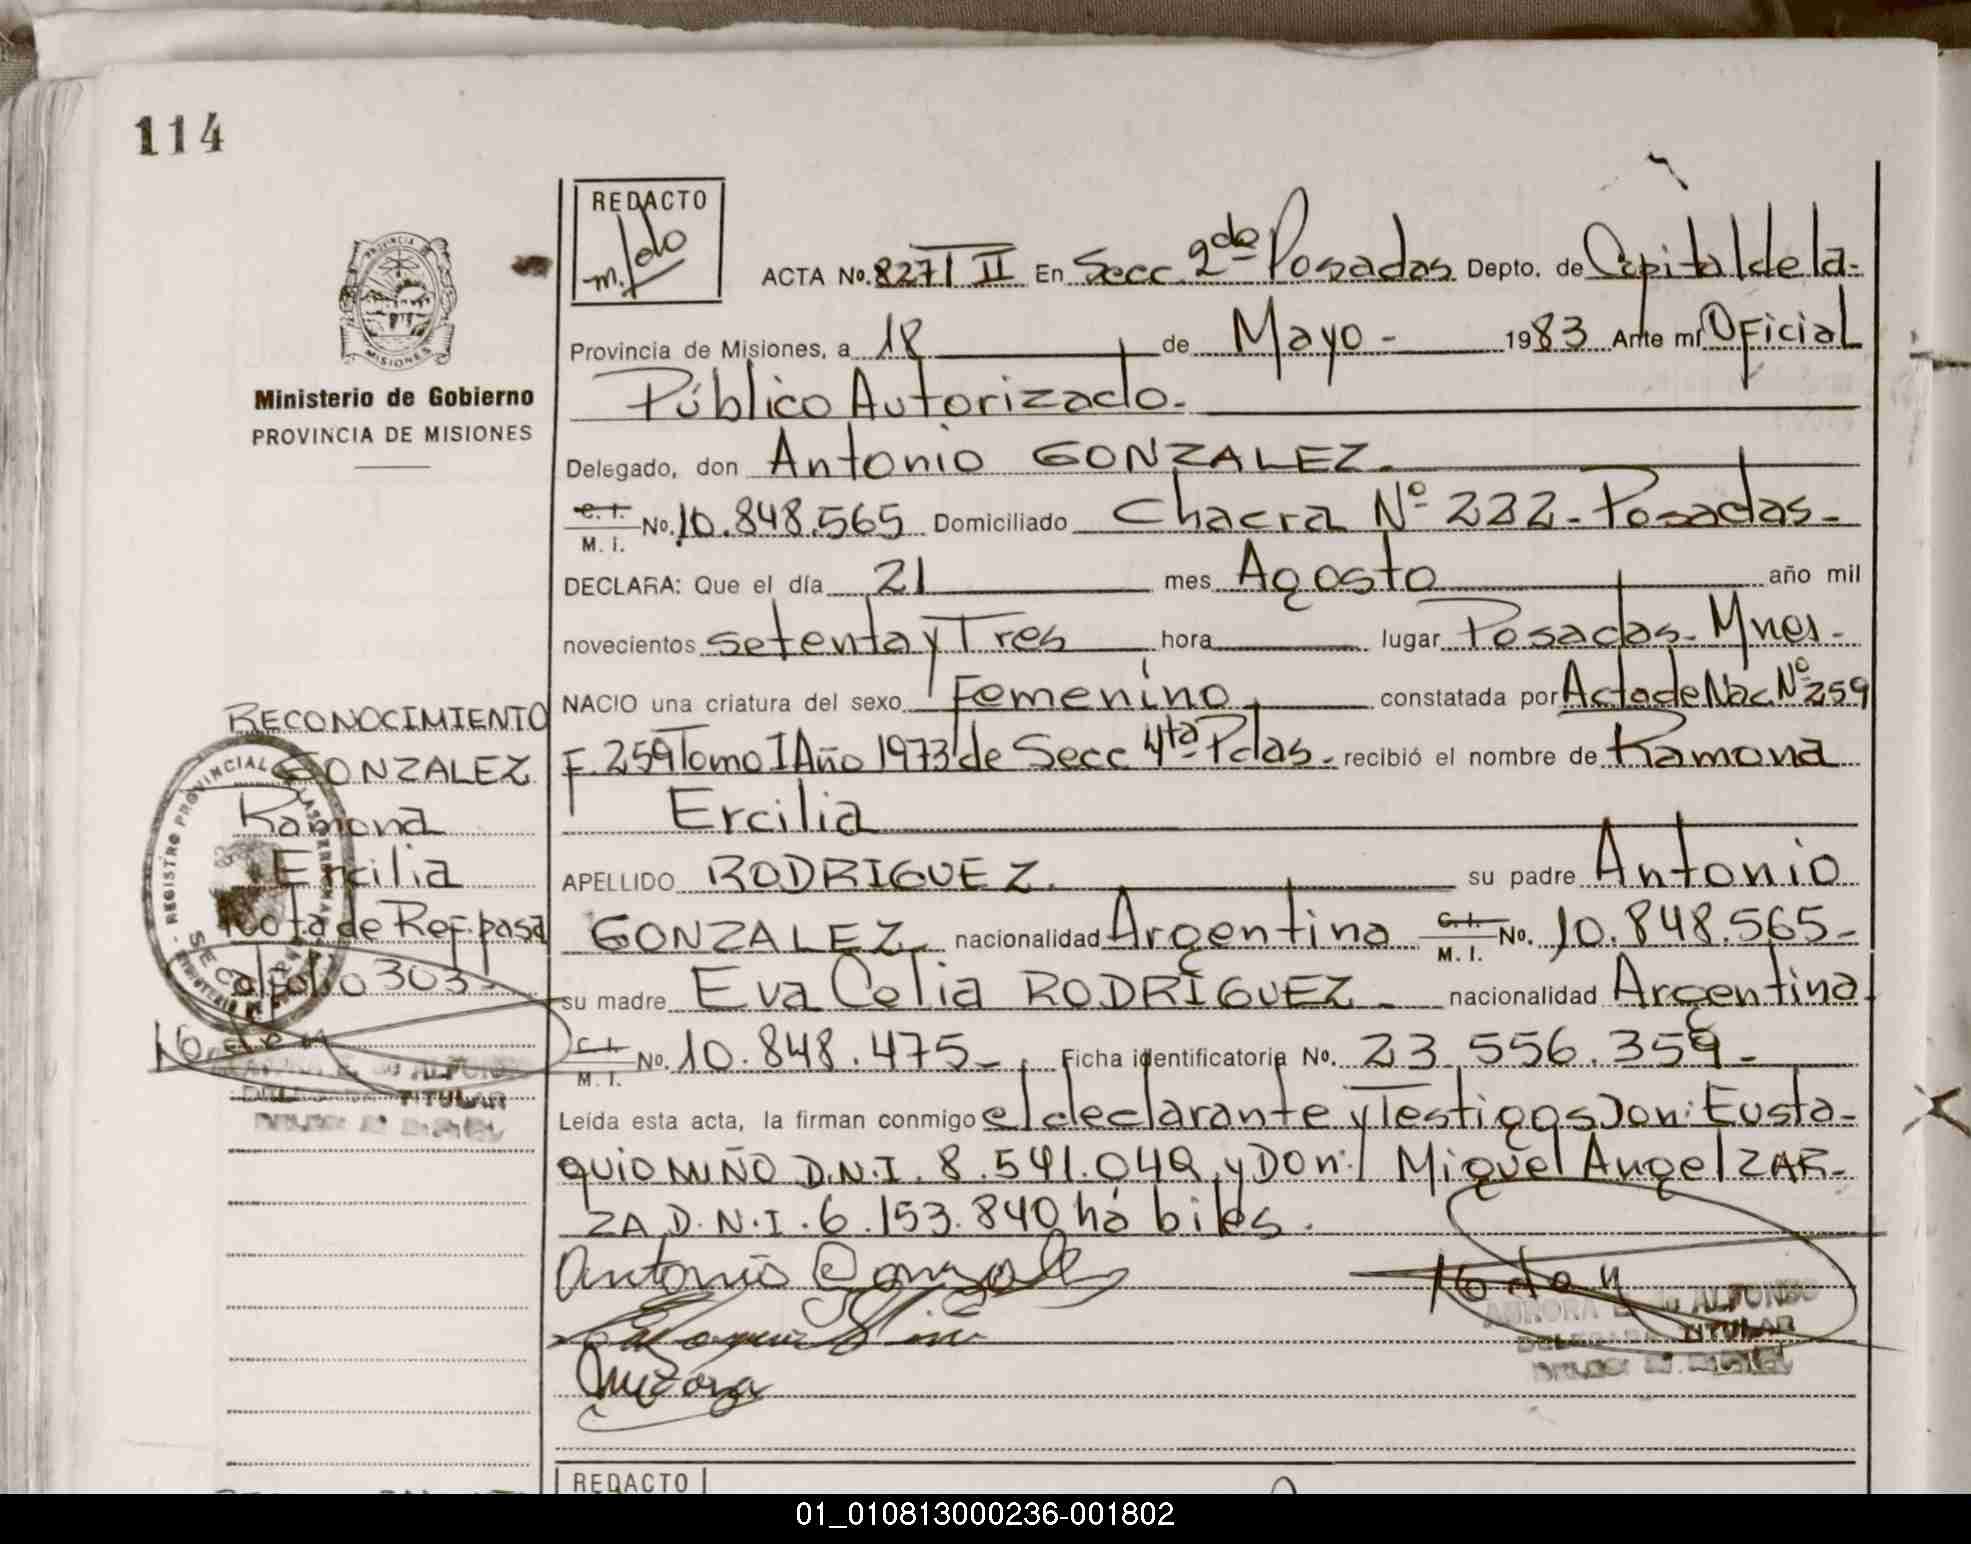 114
REDACTO
ACTA No. 827 T II En Secc 2da Posadas Depto. de Capital de la-
Provincia de Misiones, a 18 de Mayo - 1983 Ante mí Oficial
Público Autorizado.-
Ministerio de Gobierno
PROVINCIA DE MISIONES
Delegado, don Antonio GONZALEZ.
C. I. No. 10.848.565 Domiciliado Chacra Nº 222- Posadas-
M. I.
DECLARA: Que el día 21 mes Agosto año mil
novecientos setenta y Tres hora lugar Posadas- Mnes.-
NACIO una criatura del sexo Femenino constatada por Acta de Nac. Nº 259
F. 259 Tomo I Año 1973 de Secc 4ta Pdas.- recibió el nombre de Ramona
Ercilia
APELLIDO RODRIGUEZ. su padre Antonio
GONZALEZ nacionalidad Argentina C. I. No. 10.848.565-
M. I.
su madre Eva Celia RODRIGUEZ - nacionalidad Argentina
C. I. No. 10.848.475- Ficha identificatoria No. 23.556.359-
M. I.
Leída esta acta, la firman conmigo el declarante y Testigos Don: Eusta-
quio MIÑO D.N.I. 8.541.049 y Don: Miguel Angel ZAR-
ZA D.N.I. 6.153.840 hábiles.
Antonio Gonzalez
AURORA ALFONSO
DELEGADA TITULAR
RECONOCIMIENTO
GONZALEZ
Ramona
Ercilia
Nota de Ref. pasa
al folio 303-
REGISTRO PROVINCIAL
ALFONSO
TITULAR
REDACTO
01_010813000236-001802